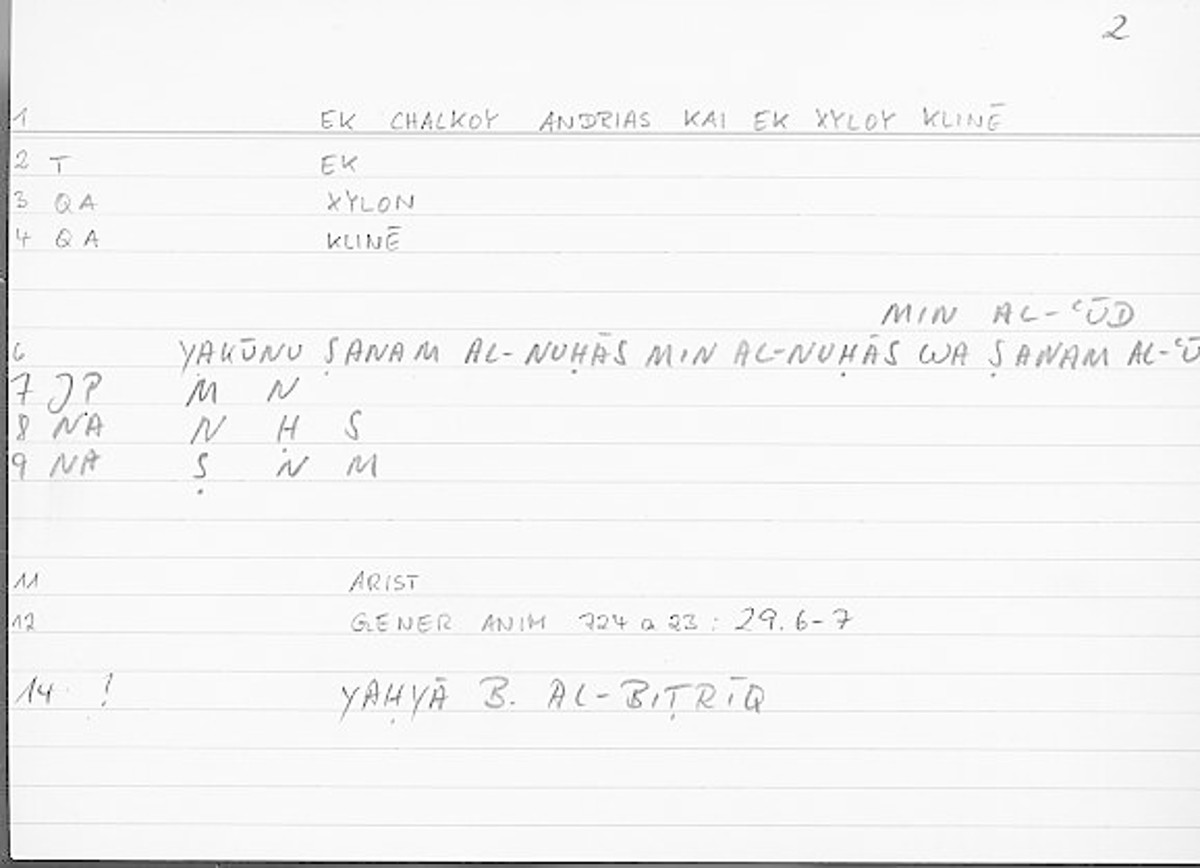 2
1 EK CHALKOY ANDRIAS KAI EK XYLOY KLINĒ
2 T EK
3 QA XYLON
4 QA KLINĒ
MIN AL-ʿŪD
6 YAKŪNU ṢANAM AL-NUḤĀS MIN AL-NUḤĀS WA ṢANAM AL-ʿŪ
7 JP M N
8 NA N Ḥ S
9 NA Ṣ N M
11 ARIST
12 GENER ANIM 724 a 23 : 29.6-7
14 ! YAḤYĀ B. AL-BIṬRĪQ